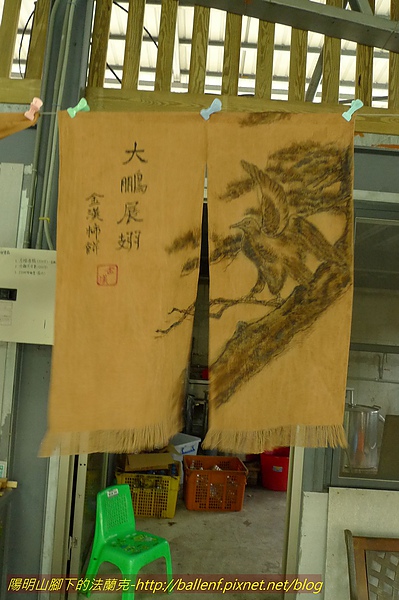 大鵬展翅
金漢柿餅
陽明山腳下的法蘭克-http://ballenf.pixnet.net/blog